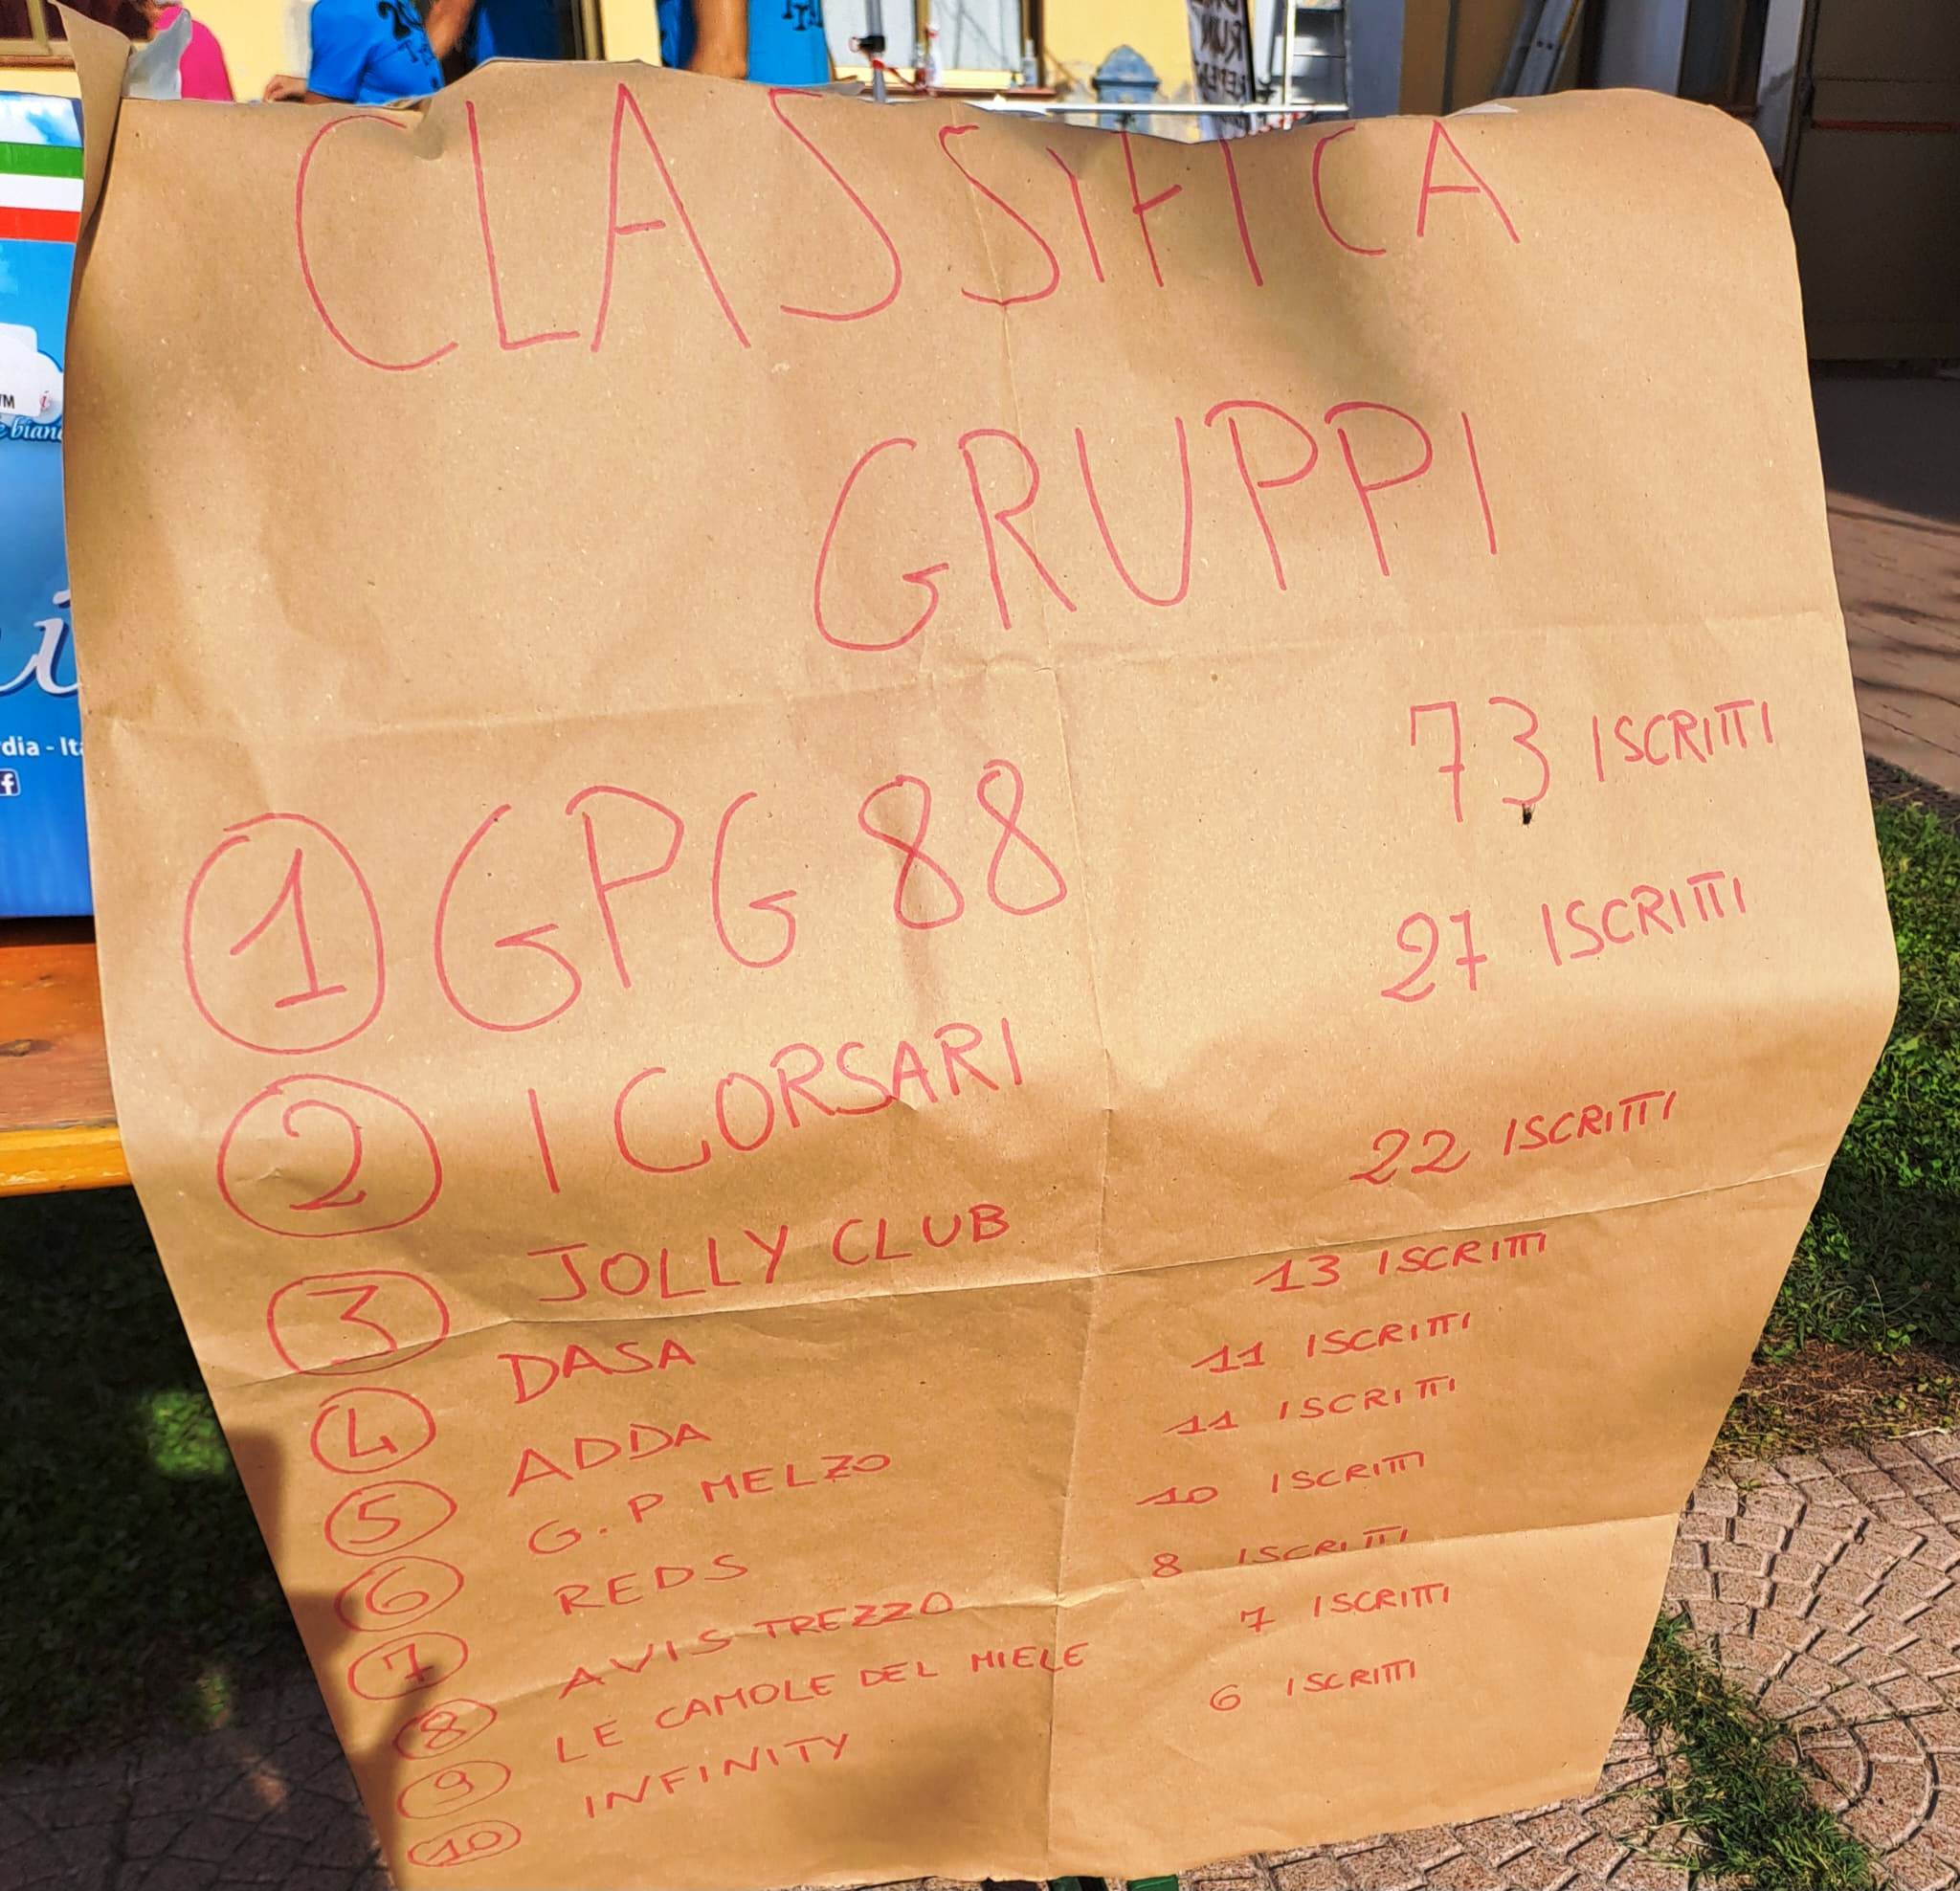 CLASSIFICA
GRUPPI
1 GPG 88 73 ISCRITTI
2 I CORSARI 27 ISCRITTI
3 JOLLY CLUB 22 ISCRITTI
4 DASA 13 ISCRITTI
5 ADDA 11 ISCRITTI
6 G.P MELZO 11 ISCRITTI
7 REDS 10 ISCRITTI
8 AVIS TREZZO 8 ISCRITTI
9 LE CAMOLE DEL MIELE 7 ISCRITTI
10 INFINITY 6 ISCRITTI
RUN